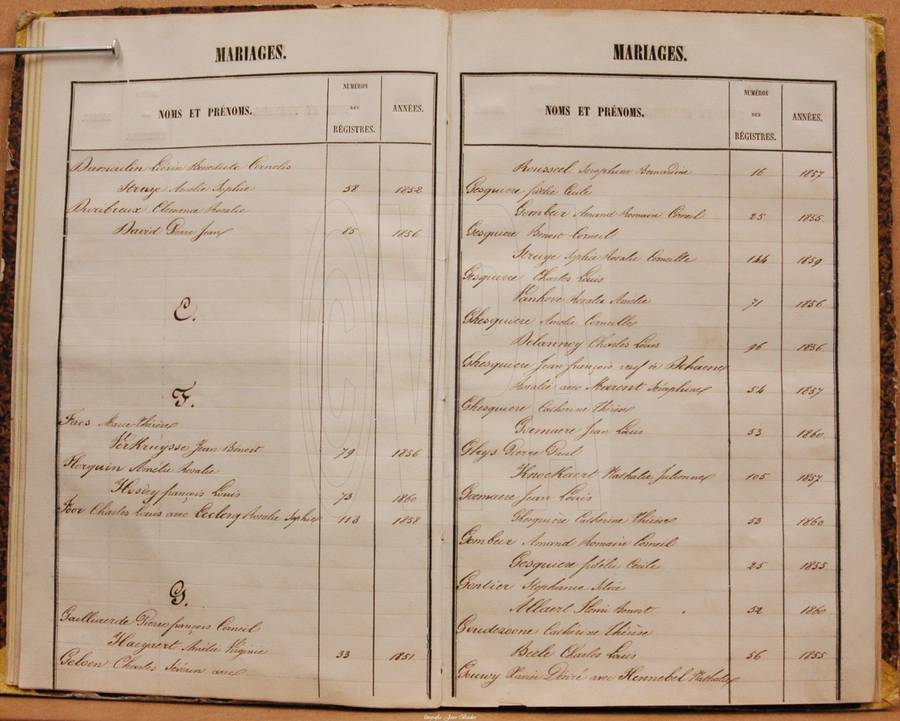 MARIAGES.
NOMS ET PRÉNOMS.
NUMÉROS
DES
RÉGISTRES.
ANNÉES.
Dumoulin Benedicte Cornelis
Struye Amélie Sophie 58 1852
Duribreux Clemence Rosalie
David Pierre Jean 15 1856
E.
F.
Faes Marie Thérèse
Verkruysse Jean Bênoit 79 1856
Florquin Amélie Rosalie
françois Louis 73 1860
Foor Charles Louis avec Leclerq Rosalie Sophie 113 1858
G.
Gailliaerde Pierre françois Corneil
Haeyaert Amélie Virginie 33 1851
Geloen Charles Séverin avec
MARIAGES.
NOMS ET PRÉNOMS.
NUMÉROS
DES
RÉGISTRES.
ANNÉES.
Roussel Séraphine Bernardine 16 1857
Gesquiere fidélie Cécile
Gombeir Amand Romain Corneil 25 1855
Gesquiere Benoit Corneil
Struye Sophie Rosalie Corneille 144 1859
Gesquiere Charles Louis
Vanhove Rosalie Amélie 71 1856
Ghesquiere Amélie Corneille
Delannoy Charles Louis 96 1856
Ghesquiere Jean françois veuf de Dehaene
Rosalie avec Séraphine 54 1857
Ghesquiere Catherine Thérèse
Goemaere Jean Louis 53 1860
Gheys Pierre Paul
Knockaert Nathalie Julienne 105 1857
Goemaere Jean Louis
Ghesquière Catherine Thérèse 53 1860
Gombeir Amand Romain Corneil
Gesquiere fidélie Cécile 25 1855
Gontier Stephanie
Allaert Henri Benoit 52 1860
Goudezoone Catherine Thérèse
Beele Charles Louis 56 1855
Gouwy Xavier Désiré avec Kennebel Nathalie